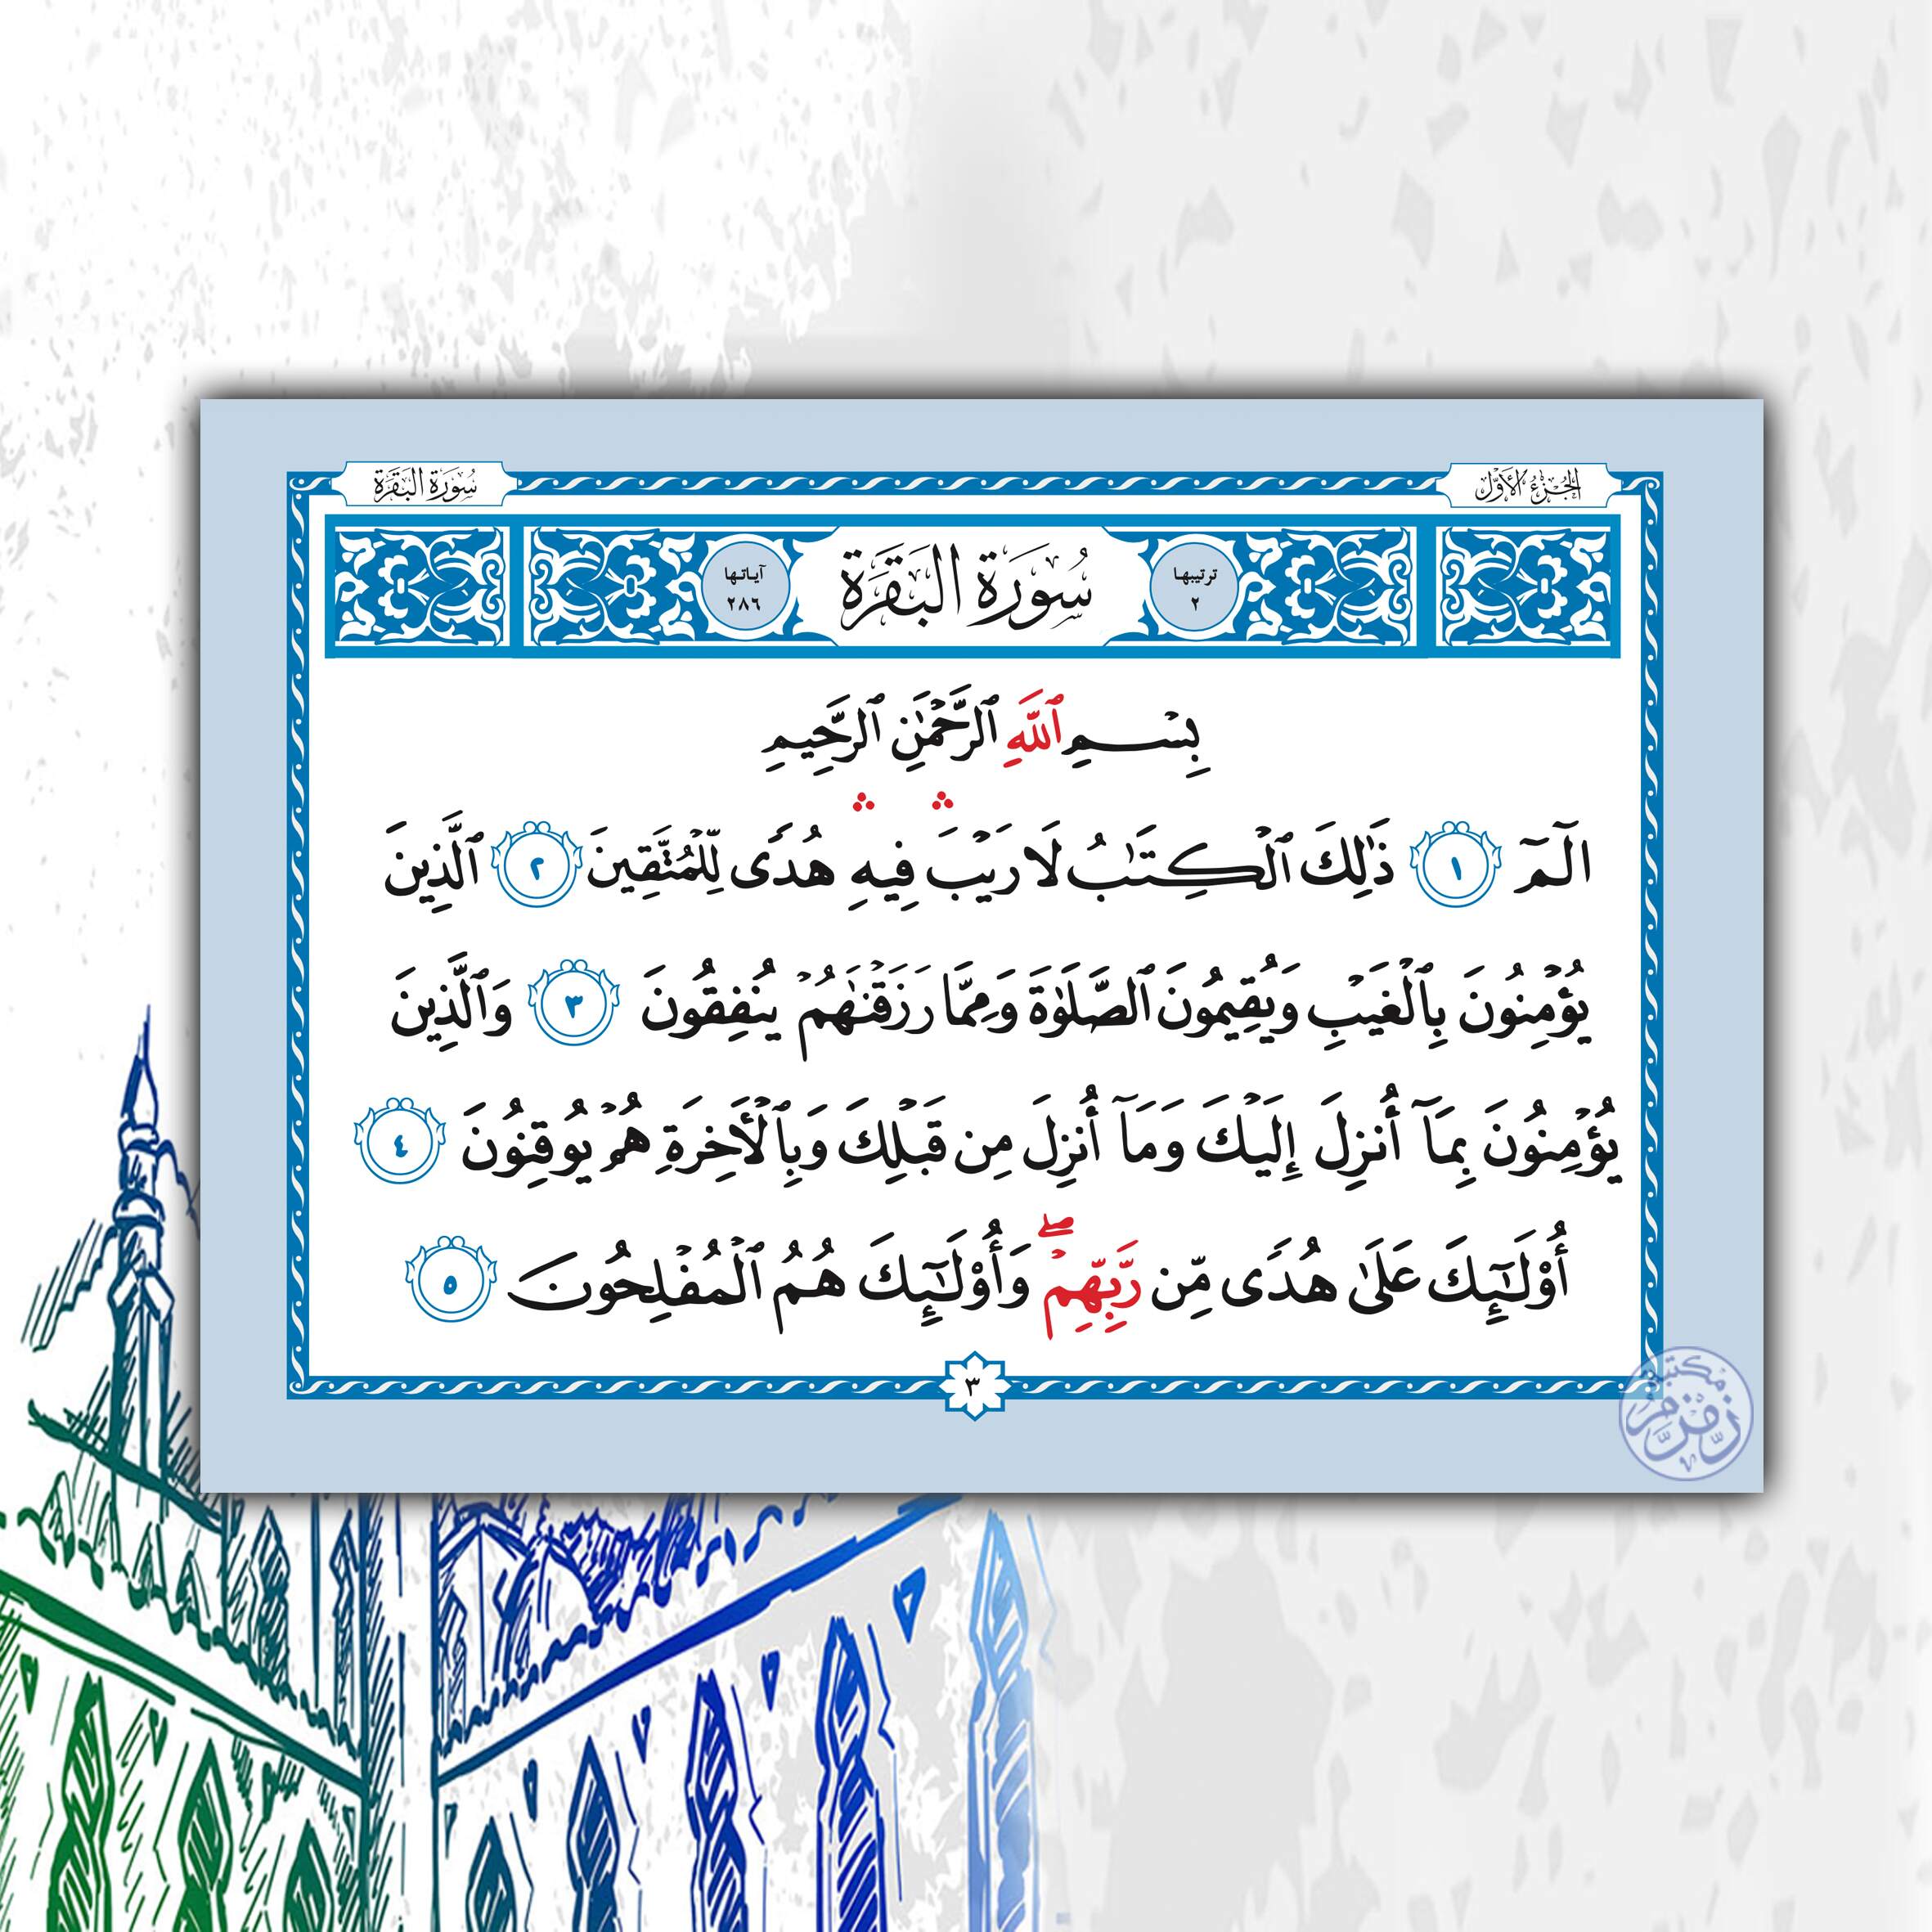 الجزء الأول
سورة البقرة
ترتيبها
٢
سُورَةُ البَقَرَةِ
آياتها
٢٨٦
بِسْمِ ٱللَّهِ ٱلرَّحْمَٰنِ ٱلرَّحِيمِ
الٓمٓ ١ ذَٰلِكَ ٱلْكِتَٰبُ لَا رَيْبَ ۛ فِيهِ ۛ هُدًى لِّلْمُتَّقِينَ ٢ ٱلَّذِينَ
يُؤْمِنُونَ بِٱلْغَيْبِ وَيُقِيمُونَ ٱلصَّلَوٰةَ وَمِمَّا رَزَقْنَٰهُمْ يُنفِقُونَ ٣ وَٱلَّذِينَ
يُؤْمِنُونَ بِمَآ أُنزِلَ إِلَيْكَ وَمَآ أُنزِلَ مِن قَبْلِكَ وَبِٱلْأَخِرَةِ هُمْ يُوقِنُونَ ٤
أُوْلَٰٓئِكَ عَلَىٰ هُدًى مِّن رَّبِّهِمْ ۖ وَأُوْلَٰٓئِكَ هُمُ ٱلْمُفْلِحُونَ ٥
٣
مكتبة
زمزم